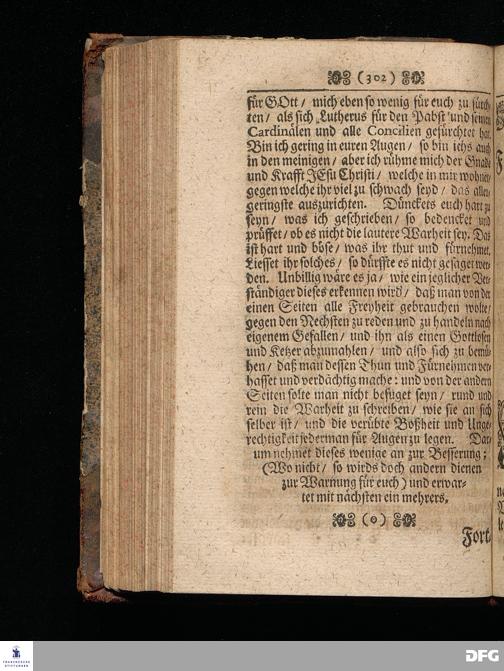 (302)
für GOtt / mich eben so wenig für euch zu fürch-
ten / als sich Lutherus für den Pabst und seinen
Cardinälen und alle Concilien gefürchtet hat.
Bin ich gering in euren Augen / so bin ichs auch
in den meinigen / aber ich rühme mich der Gnade
und Krafft JEsu Christi / welche in mir wohnet /
gegen welche ihr viel zu schwach seyd / das aller-
geringste auszurichten. Dünckets euch hart zu
seyn / was ich geschrieben / so bedencket und
prüffet / ob es nicht die lautere Warheit sey. Das
ist hart und böse / was ihr thut und fürnehmet.
Liesset ihr solches / so dürffte es nicht gesaget wer-
den. Unbillig wäre es ja / wie ein jeglicher Ver-
ständiger dieses erkennen wird / daß man von der
einen Seiten alle Freyheit gebrauchen wolte /
gegen den Nechsten zu reden und zu handeln nach
eigenem Gefallen / und ihn als einen Gottlosen
und Ketzer abzumahlen / und also sich zu bemü-
hen / daß man dessen Thun und Fürnehmen ver-
hasset und verdächtig mache: und von der andern
Seiten solte man nicht befuget seyn / rund und
rein die Warheit zu schreiben / wie sie an sich
selber ist / und die verübte Boßheit und Unge-
rechtigkeit jederman für Augen zu legen. Dar-
um nehmet dieses wenige an zur Besserung;
(Wo nicht / so wirds doch andern dienen
zur Warnung für euch) und erwar-
tet mit nächsten ein mehrers.
(o)
Fort-
FRANCKESCHE
STIFTUNGEN
DFG